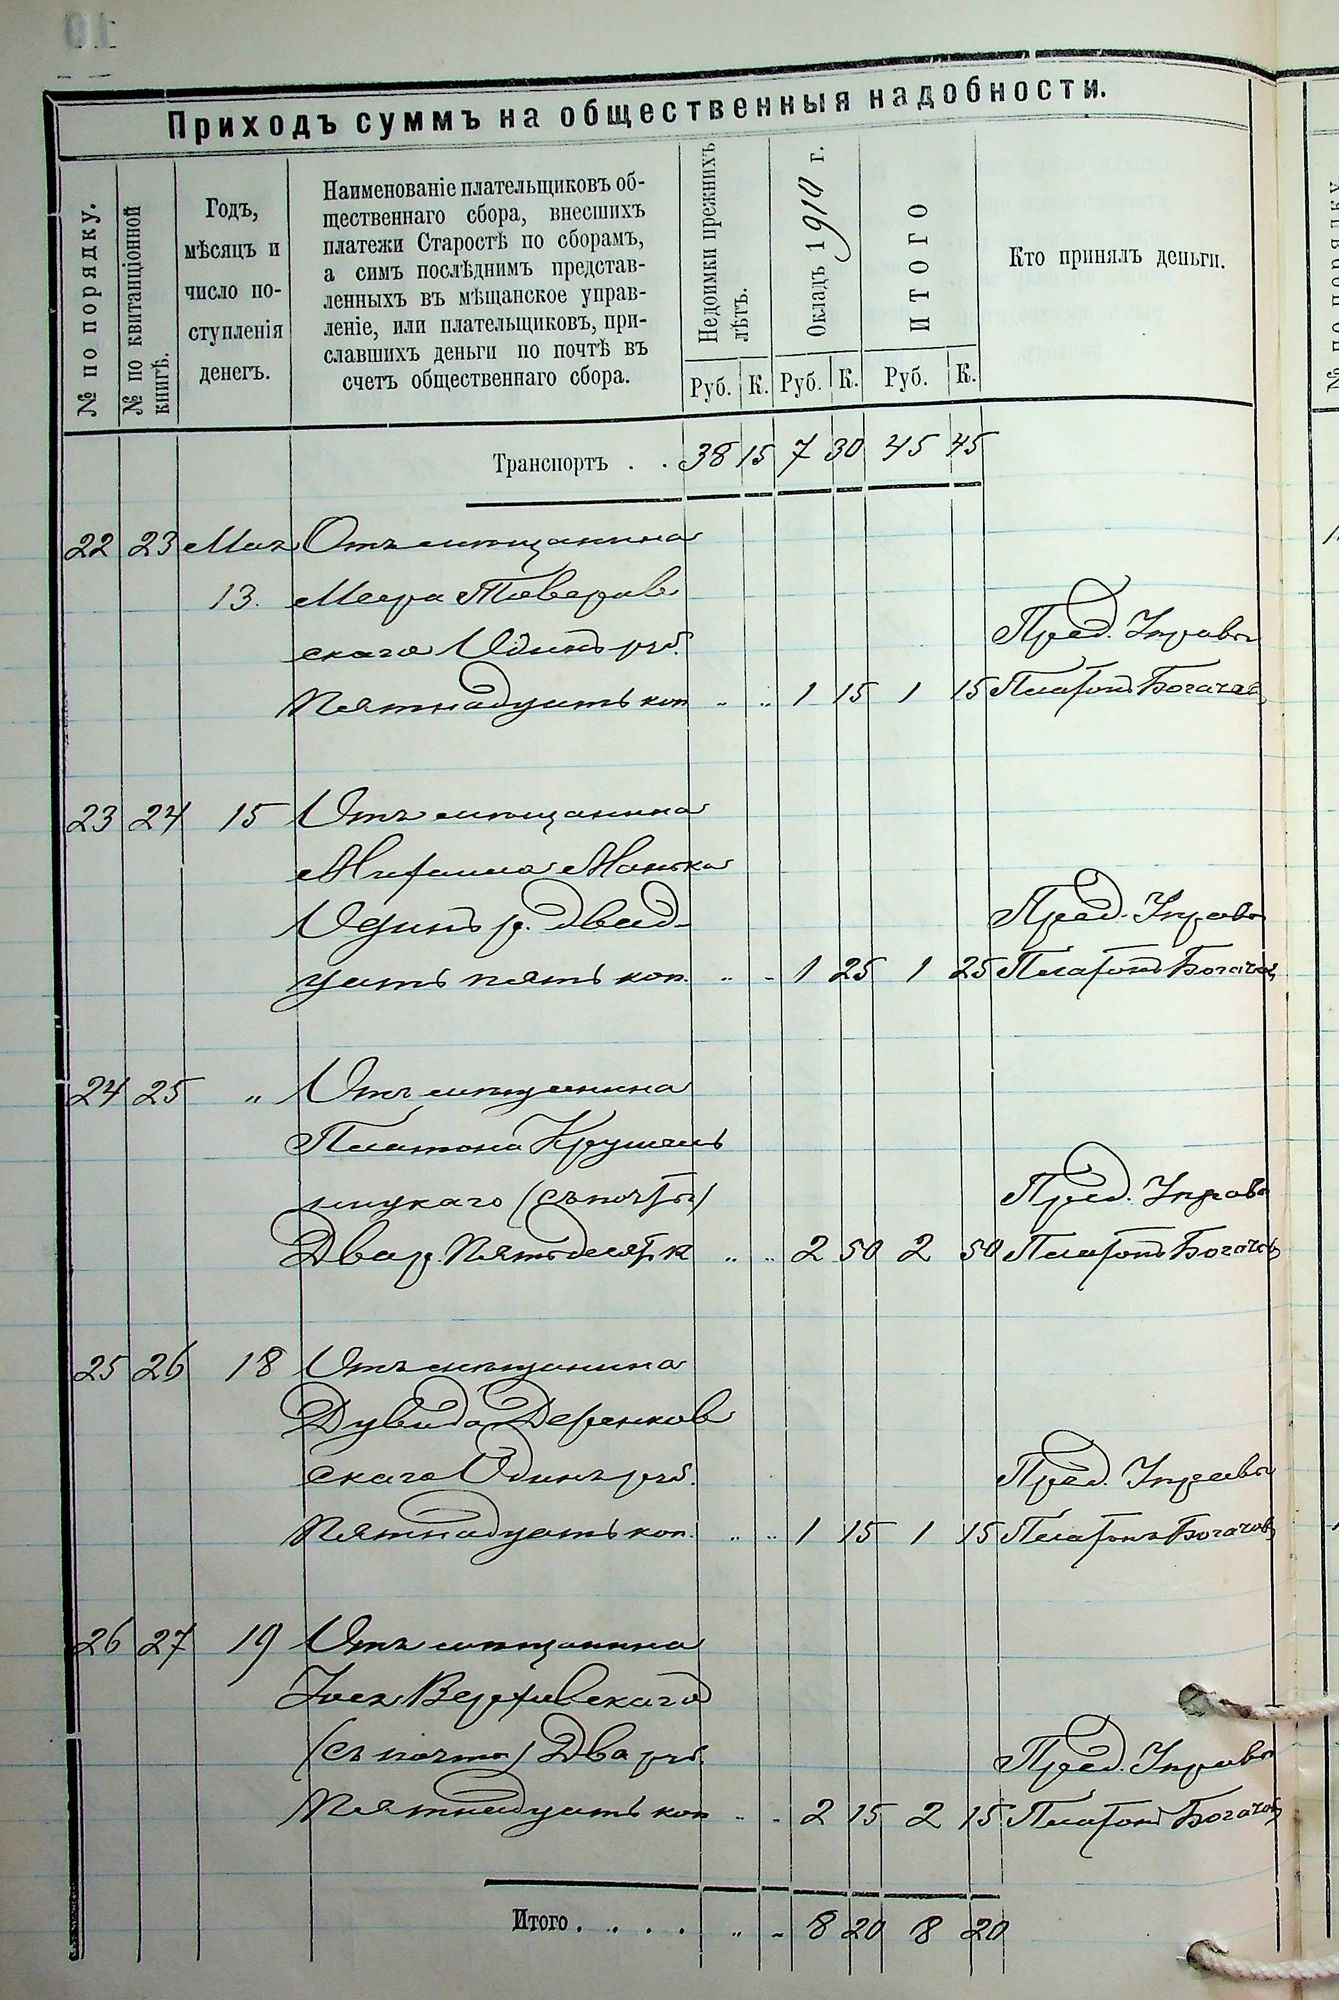 Приходъ суммъ на общественныя надобности.
№ по порядку.
№ по квитанціонной книгѣ.
Годъ,
мѣсяцъ и
число по-
ступленія
денегъ.
Наименованіе плательщиковъ об-
щественнаго сбора, внесшихъ
платежи Старостѣ по сборамъ,
а симъ послѣднимъ представ-
ленныхъ въ мѣщанское управ-
леніе, или плательщиковъ, при-
славшихъ деньги по почтѣ въ
счетъ общественнаго сбора.
Недоимки прежнихъ лѣтъ.
Окладъ 1910 г.
ИТОГО
Кто принялъ деньги.
Руб. К. Руб. К. Руб. К.
Транспортъ . . 38 15 7 30 45 45
22 23 Мая Отъ мѣщанина
13. Меера Товаров
скаго Одинъ руб. Пред. Управы
Пятнадцать коп „ „ 1 15 1 15 Платонъ Богачов
23 24 15 Отъ мѣщанина
Манька
Одинъ р. двад- Пред. Управы
цать пять коп. „ „ 1 25 1 25 Платонъ Богачов
24 25 „ Отъ мѣщанина
Платона Крушель
ницкаго (съ почты) Пред. Управы
Два р. Пятьдесят к „ „ 2 50 2 50 Платонъ Богачов
25 26 18 Отъ мѣщанина
Дувида Деренков
скаго Одинъ руб. Пред. Управы
Пятнадцать коп. „ „ 1 15 1 15 Платонъ Богачов
26 27 19 Отъ мѣщанина
Верховскаго
(съ почты) Два руб. Пред. Управы
Пятнадцать коп „ „ 2 15 2 15 Платонъ Богачов
Итого . . . . „ „ 8 20 8 20